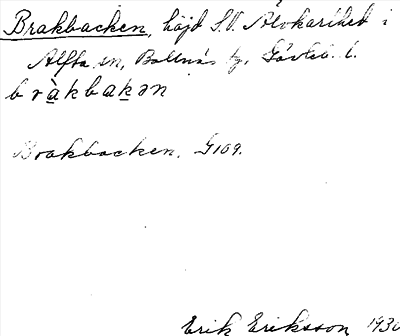 Brakbacken, höjd S.V. Älvkarlhed i
Alfta sn, Bollnäs tg, Gävleb. l.
bràkbakən
Brakbacken. G109.
Erik Eriksson 1930